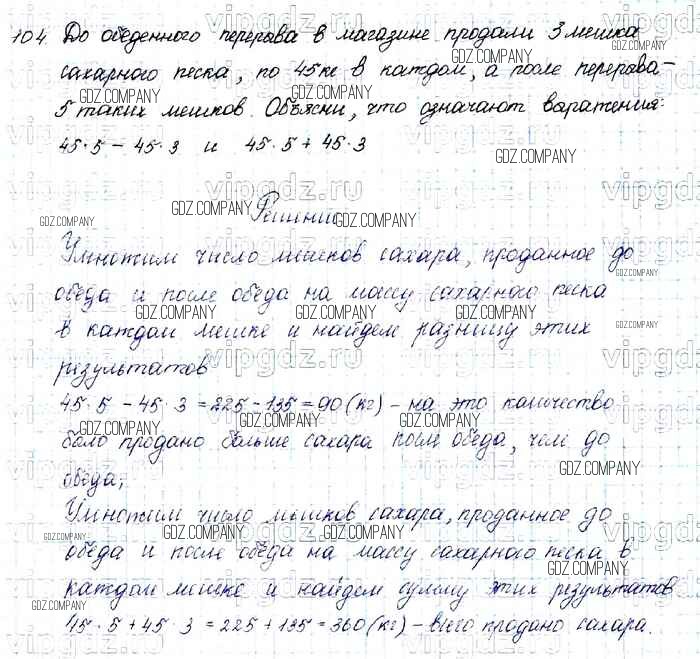 104. До обеденного перерыва в магазине продали 3 мешка
сахарного песка, по 45 кг в каждом, а после перерыва -
5 таких мешков. Объясни, что означают выражения:
45·5 - 45·3 и 45·5 + 45·3
Решение
Умножим число мешков сахара, проданное до
обеда и после обеда на массу сахарного песка
в каждом мешке и найдем разницу этих
результатов
45·5 - 45·3 = 225 - 135 = 90 (кг) - на это количество
было продано больше сахара после обеда, чем до
обеда;
Умножим число мешков сахара, проданное до
обеда и после обеда на массу сахарного песка в
каждом мешке и найдем сумму этих результатов
45·5 + 45·3 = 225 + 135 = 360 (кг) - всего продано сахара.
GDZ.COMPANY
vipgdz.ru